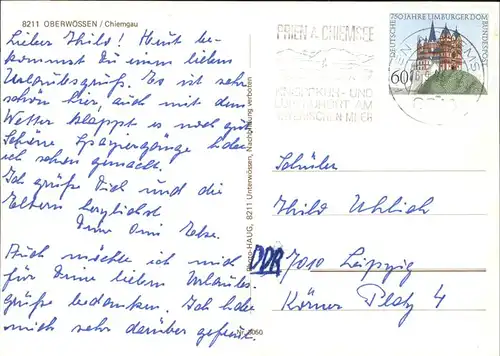 8211 OBERWÖSSEN / Chiemgau
Lieber Thilo! Heut be-
kommst Du einen lieben
Urlaubsgruß. Es ist sehr
schön hier, auch mit dem
Wetter klappt es noch gut
Schöne Spaziergänge habe
ich schon gemacht.
Ich grüße Dich und die
Eltern herzlichst
Deine Omi Else.
Auch möchte ich mich
für Deine lieben Urlaubs-
grüße bedanken. Ich habe
mich sehr darüber gefreut.
Photo-HAUG, 8211 Unterwössen, Nachahmung verboten
Nr. 3060
PRIEN A. CHIEMSEE
KNEIPPKUR- UND
LUFTKURORT AM
BAYERISCHEN MEER
750 JAHRE LIMBURGER DOM
DEUTSCHE BUNDESPOST
60
Schüler
Thilo Uhlich
DDR 7010 Leipzig
Körner Platz 4